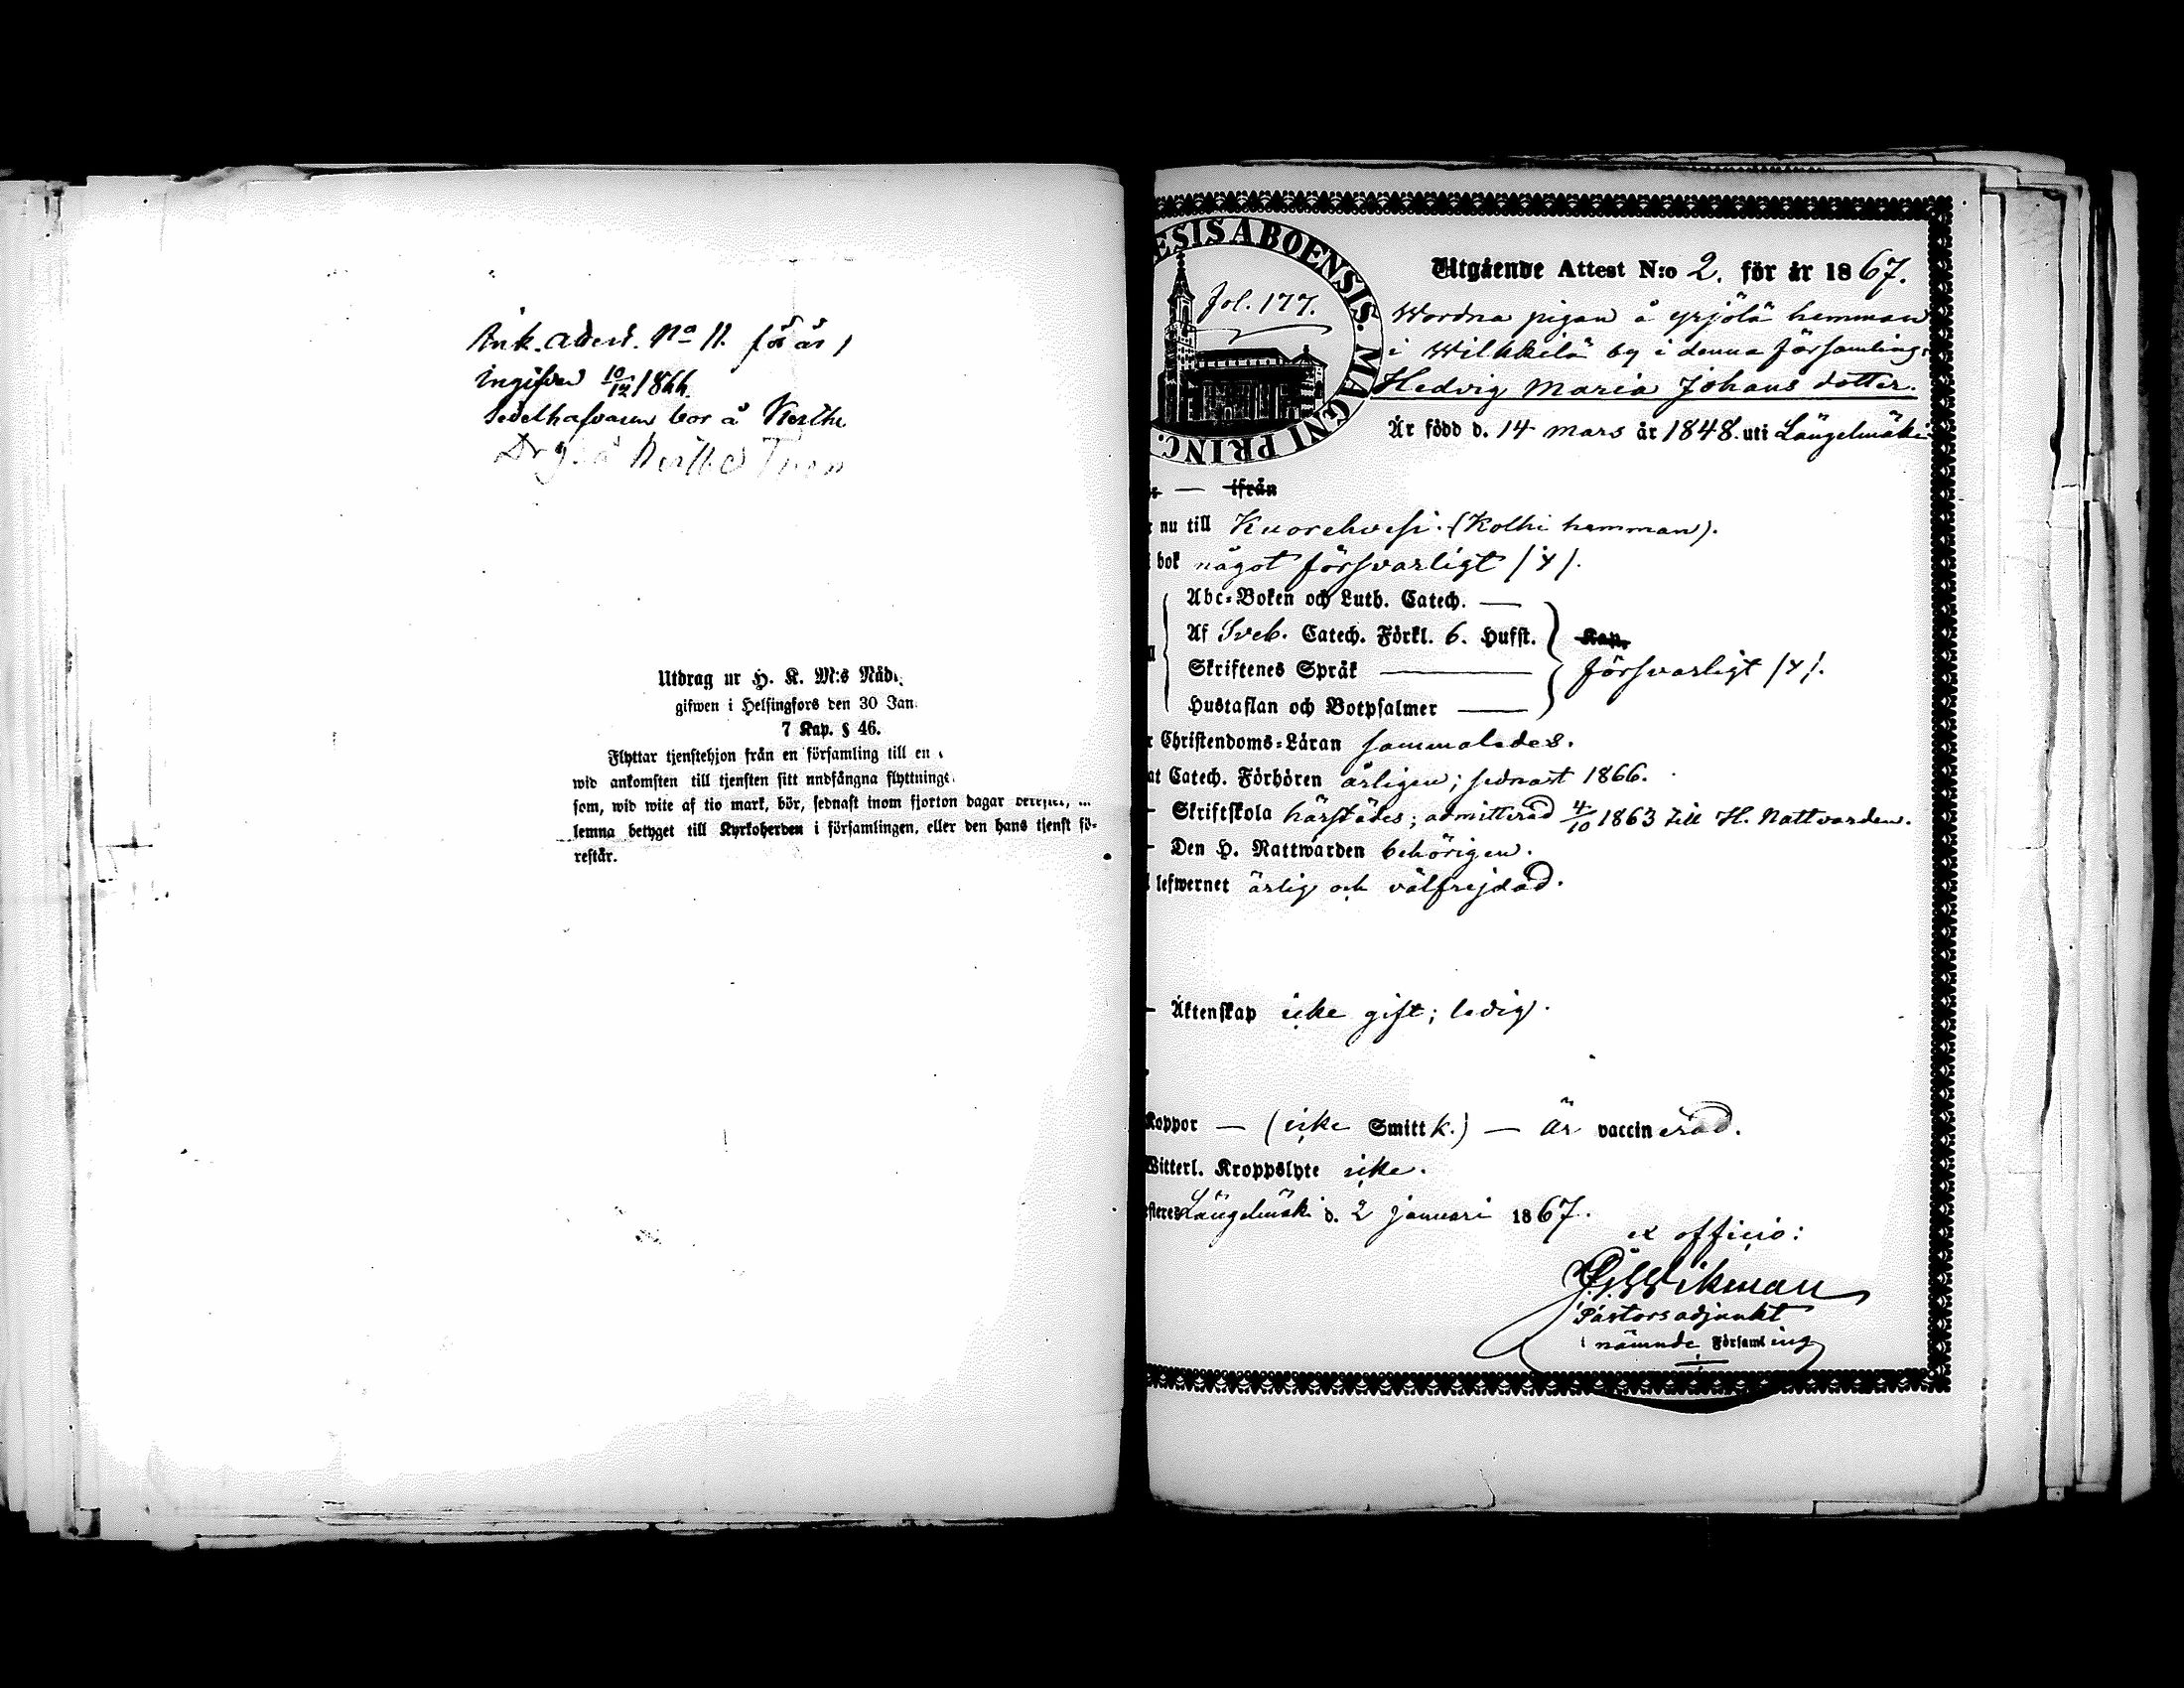 Ank. attest. No 11. för år 1
ingifven 10/12 1866.
Sedelhafvaren bor å
Utdrag ur H. K. M:s Nåd
gifwen i Helsingfors den 30 Jan.
7 Kap. § 46.
Flyttar tjenstehjon från en församling till en
wid ankomsten till tjensten sitt undfångna flyttnings
som, wid wite af tio mark, bör, sednast inom fjorton dagar
lemna betyget till Kyrkoherden i församlingen, eller den hans tjenst fö-
restår.
ESIS ABOENSIS. MAGNI PRINC.
fol. 177.
Utgående Attest N:o 2. för år 1867.
Wordna pigan å Yrjölä hemman
i Wilkkilä by i denna församling,
Hedvig Maria Johans dotter.
Är född d. 14 Mars år 1848. uti Längelmäki
— ifrån
nu till Kuorehvesi. (Kolhi hemman).
bok något försvarligt /y/.
Abc-Boken och Luth. Catech. —
Af Sveb. Catech. Förkl. 6. Hufst. Kap.
Skriftenes Språk — försvarligt /y/.
Hustaflan och Botpsalmer —
Christendoms-Läran sammalades.
at Catech. Förhören årligen; sednast 1866.
— Skriftskola härstädes; admitterad 4/10 1863 till H. Nattvarden.
— Den H. Nattwarden behörigen.
lefwernet ärlig och välfrejdad.
— Äktenskap icke gift; ledig.
Koppor — (icke Smittk.) — är vaccinerad.
Witterl. Kroppslyte icke.
esteres Längelmäki d. 2 Januari 1867.
ex officio:
Wikman
Pastorsadjunkt
i nämnde Församling